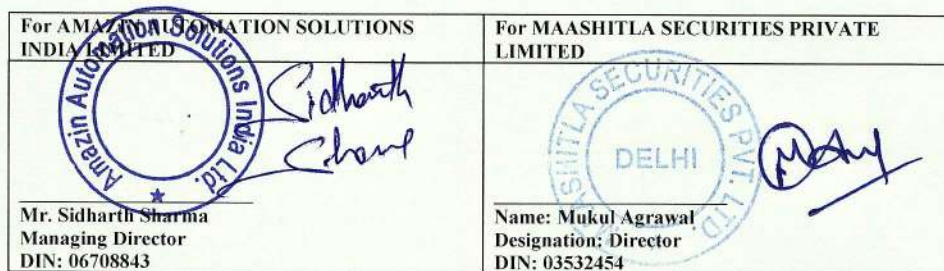 For AMAZIN AUTOMATION SOLUTIONS
INDIA LIMITED
Amazin Automation Solutions India Ltd.
Sidharth
Mr. Sidharth Sharma
Managing Director
DIN: 06708843
For MAASHITLA SECURITIES PRIVATE
LIMITED
MAASHITLA SECURITIES PVT. LTD.
DELHI
Name: Mukul Agrawal
Designation: Director
DIN: 03532454